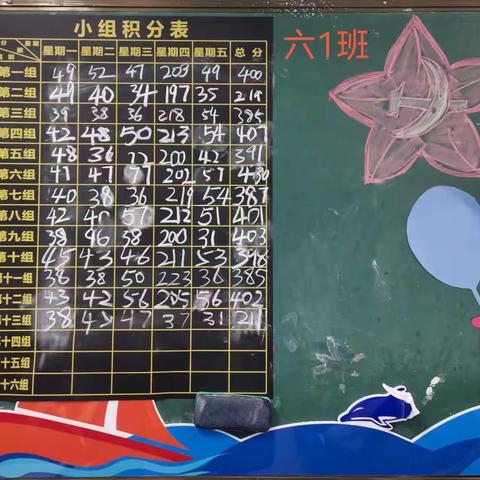 小组积分表
六1班
星期一 星期二 星期三 星期四 星期五 总分
第一组 49 52 47 203 49 400
第二组 49 40 34 197 35 219
第三组 39 38 36 218 54 385
第四组 42 48 50 213 54 407
第五组 48 36 200 42 391
第六组 47 47 202 57 430
第七组 40 38 36 219 54 387
第八组 42 40 57 212 51 401
第九组 38 46 38 200 31 403
第十组 45 43 46 211 53 398
十一组 38 38 50 223 36 385
十二组 43 42 56 205 56 402
十三组 38 47 37 31 211
十四组
十五组
十六组